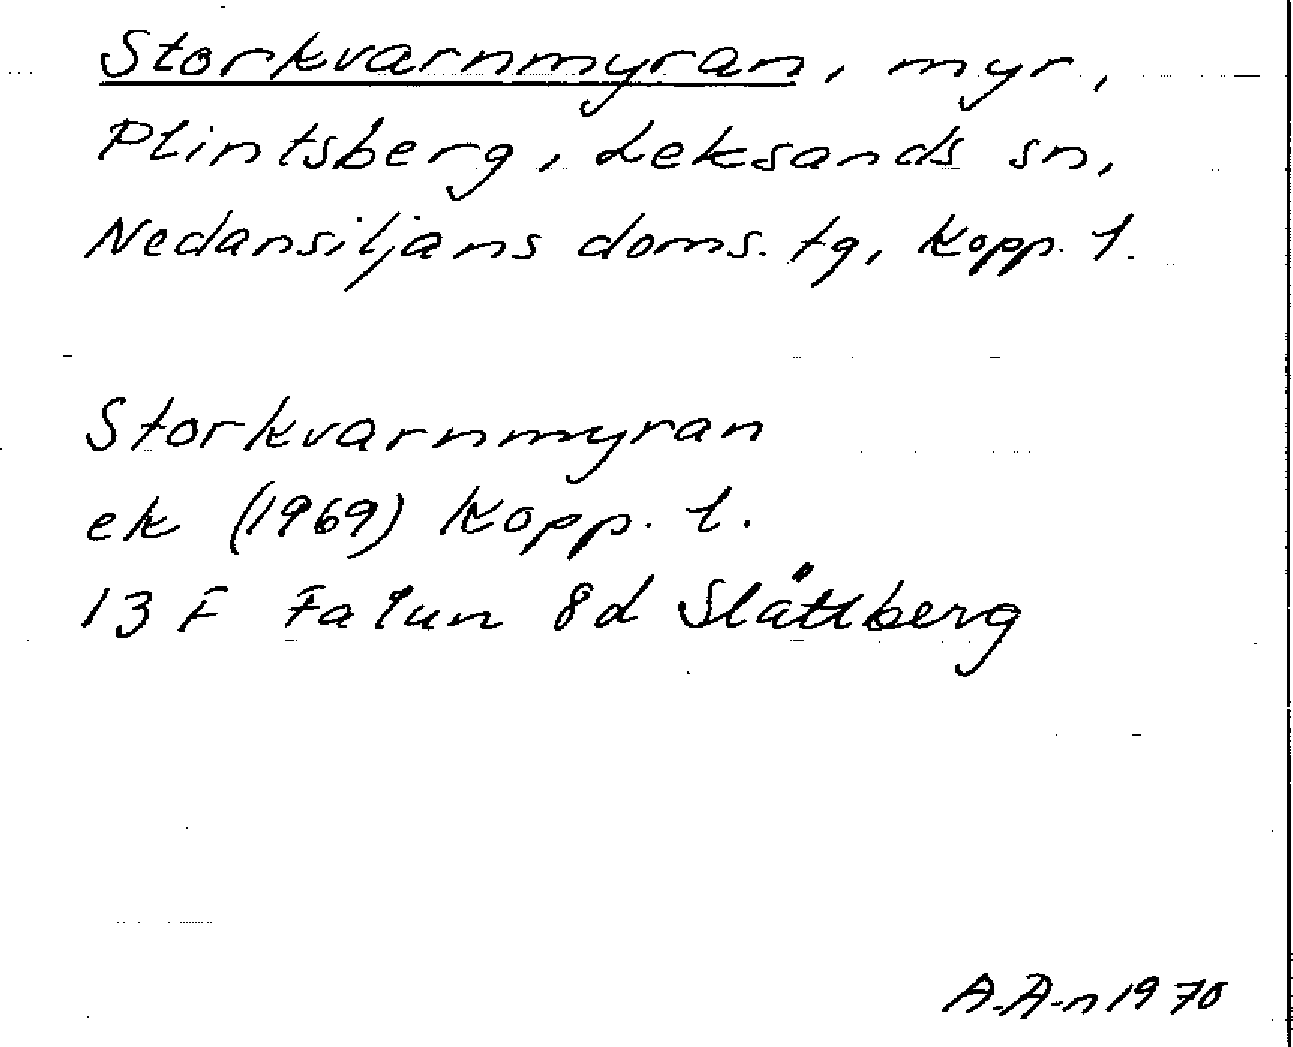 Storkvarnmyran, myr,
Plintsberg, Leksands sn,
Nedansiljans doms. tg, Kopp. l.
Storkvarnmyran
ek (1969) Kopp. l.
13 F Falun 8d Slåttberg
A.A-n 1970